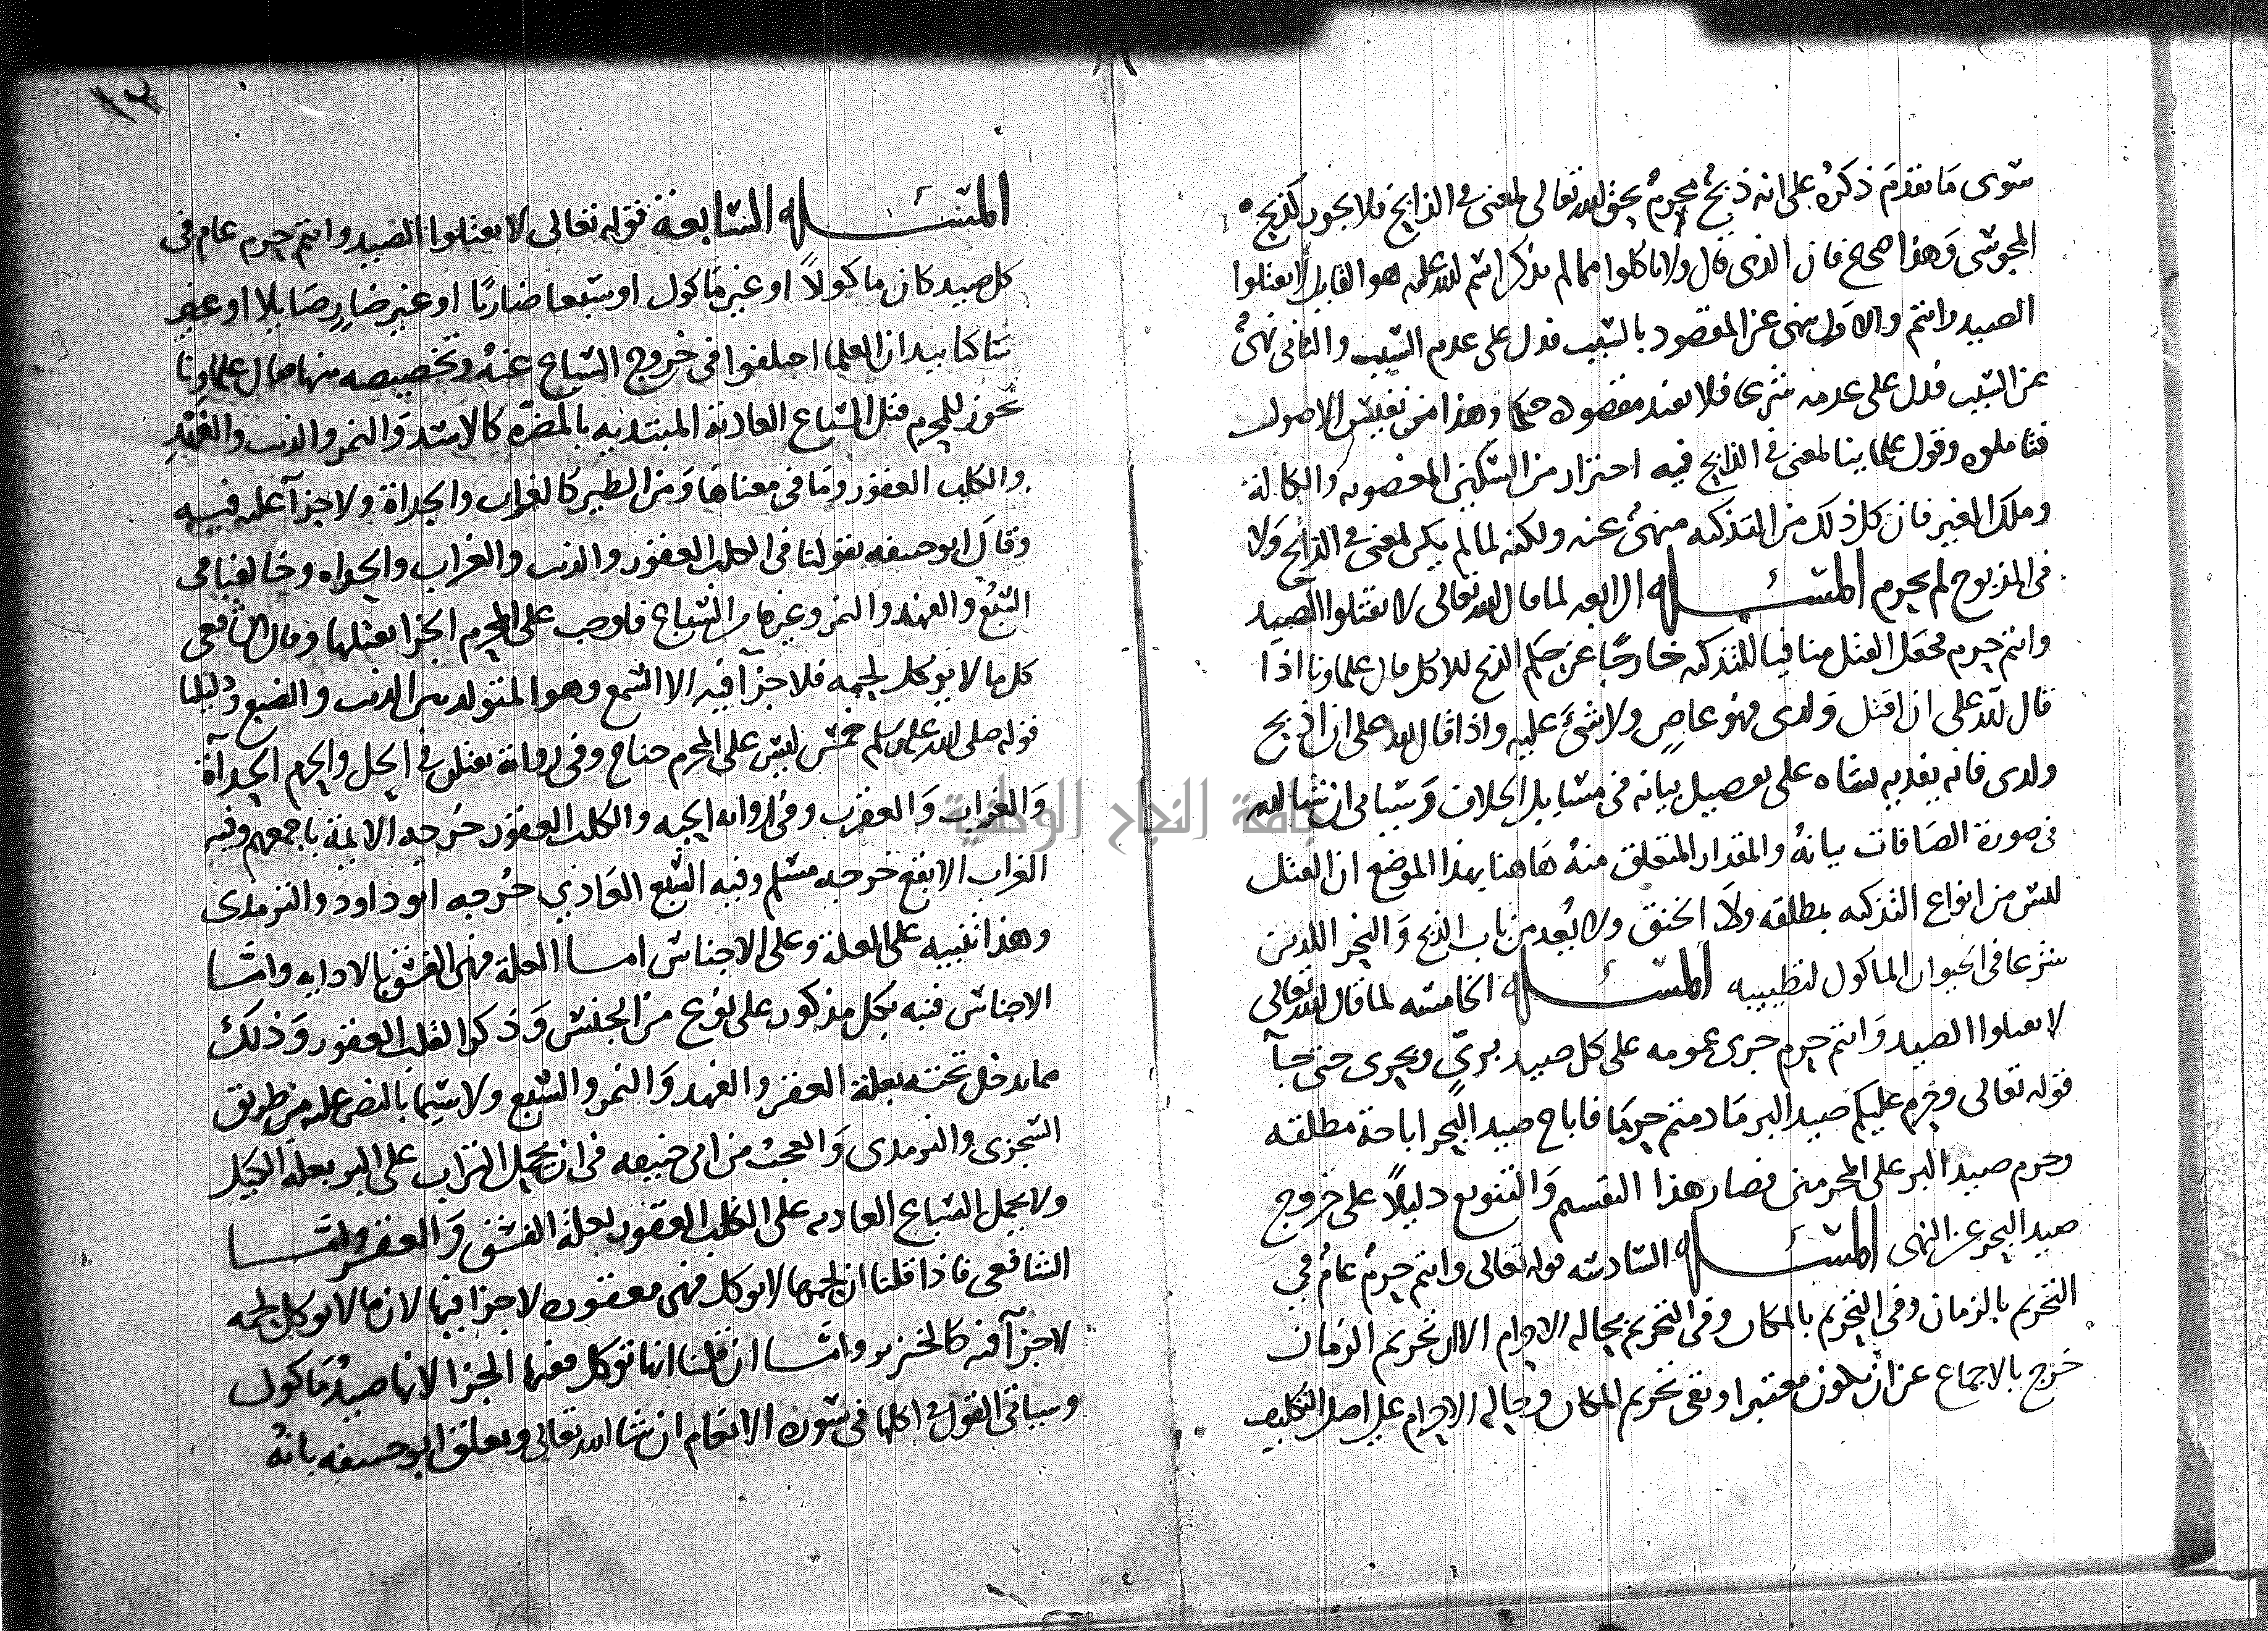 سوى ما تقدم ذكره على انه ذبح محرم بحق الله تعالى لمعنى في الذابح فلا يجوز كذبح
المجوسى وهذا صحيح فان الذى قال ولا تاكلوا مما لم يذكر اسم الله عليه هو القايل لا تقتلوا
الصيد وانتم والاول نهى عن المقصود بالسبب فدل على عدم السبب والثانى نهى
عن السبب فدل على عدمه شرعا فلا يفيد مقصوده حكما وهذا من نفيس الاصول
فتاملوه وقول علماينا لمعنى في الذابح فيه احتراز من السكين المغصوبه والكالة
وملك الغير فان كل ذلك من التذكيه منهى عنه ولكنه لما لم يكن لمعنى في الذابح ولا
فى المذبوح لم يحرم المسئله الرابعه لما قال الله تعالى لا تقتلوا الصيد
وانتم حرم فجعل القتل منافيا للتذكيه خارجا عن حكم الذبح للاكل قال علماونا اذا
قال لله على ان اقتل ولدى فهو عاص ولا شئ عليه واذا قال لله على ان اذبح
ولدى فانه يفديه بشاه على تفصيل بيانه فى مسايل الخلاف وسياتى ان شا الله
فى صورة الصافات بيانه والمقدار المتعلق منه هاهنا بهذا الموضع ان القتل
ليس من انواع التذكيه بمطلقه ولا الخنق ولا يعد من باب الذبح والنحر اللذين
شرعا فى الحيوان الماكول لتطييبه المسئله الخامسه لما قال الله تعالى
لا تقتلوا الصيد وانتم حرم جرى عمومه على كل صيد برى وبحرى حتى جآ
قوله تعالى وحرم عليكم صيد البر ما دمتم حرما فاباح صيد البحر اباحة مطلقه
وحرم صيد البر على المحرمين فصار هذا التقسيم والتنويع دليلا على خروج
صيد البحر عن النهى المسئله السادسه قوله تعالى وانتم حرم عام فى
التحريم بالزمان وفى التحريم بالمكان وفى التحريم بحالة الاحرام الا ان تحريم الزمان
خرج بالاجماع عن ان يكون معتبرا وبقى تحريم المكان وحالة الاحرام على اصل التكليف
١٣
المسئله السابعة قوله تعالى لا تقتلوا الصيد وانتم حرم عام فى
كل صيد كان ماكولا او غير ماكول او سبعا ضاريا او غير ضار صايلا او غير
ساكنا بيد ان العلما اختلفوا فى خروج السباع عنه وتخصيصه منها فقال علماونا
يجوز للمحرم قتل السباع العادية المبتديه بالمضره كالاسد والنمر والذيب والفهد
والكلب العقور وما فى معناها ومن الطير كالغراب والحداة ولا جزآ عليه فيه
وقال ابو حنيفه بقولنا فى الكلب العقور والذيب والغراب والحداه وخالفنا فى
السبع والفهد والنمر وغيرها من السباع فاوجب على المحرم الجزا بقتلها وقال الشافعى
كل ما لا يوكل لحمه فلا جزآ فيه الا السمع وهو المتولد بين الذيب والضبع ودليلنا
قوله صلى الله عليه وسلم خمس ليس على المحرم جناح وفى رواية يقتلن في الحل والحرم الحدآة
والغراب والعقرب وفى رواية الحيه والكلب العقور خرجه الايمة باجمعهم وفيه
الغراب الابقع خرجه مسلم وفيه السبع العادي خرجه ابو داود والترمذى
وهذا تنبيه على العلة وعلى الاجناس اما العلة فهى الفسق بالاذايه واما
الاجناس فنبه بكل مذكور على نوع من الجنس وذكر الكلب العقور وذلك
مما يدخل تحته بعلة العقر والفهد والنمر والسبع ولا سيما بالنص عليه من طريق
السجزى والترمذى والعجب من ابى حنيفه فى ان يحمل التراب على البر بعلة الكيل
ولا يحمل السباع العاديه على الكلب العقور بعلة الفسق والعقر واما
الشافعى فاذا قلنا ان لحمها لا يوكل فهى معقوره لا جزا فيها لان ما لا يوكل لحمه
لا جزآ فيه كالخنزير واما ان قلنا انها توكل ففيها الجزا لانها صيد ماكول
وسياتى القول في اكلها فى سورة الانعام ان شا الله تعالى وتعلق ابو حنيفه بانه
جامعة النجاح الوطنية